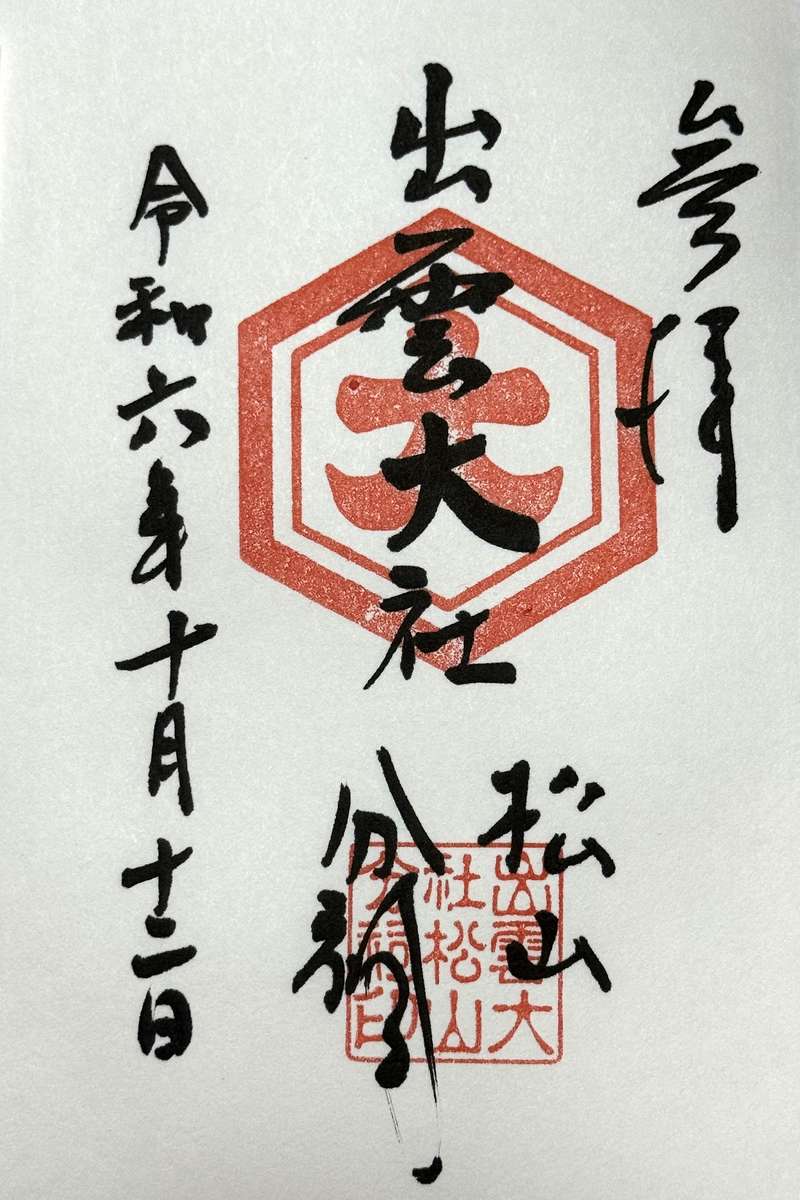 参拝
出雲大社
松山
分祠
令和六年十月十二日
大
出雲大
社松山
分祠印